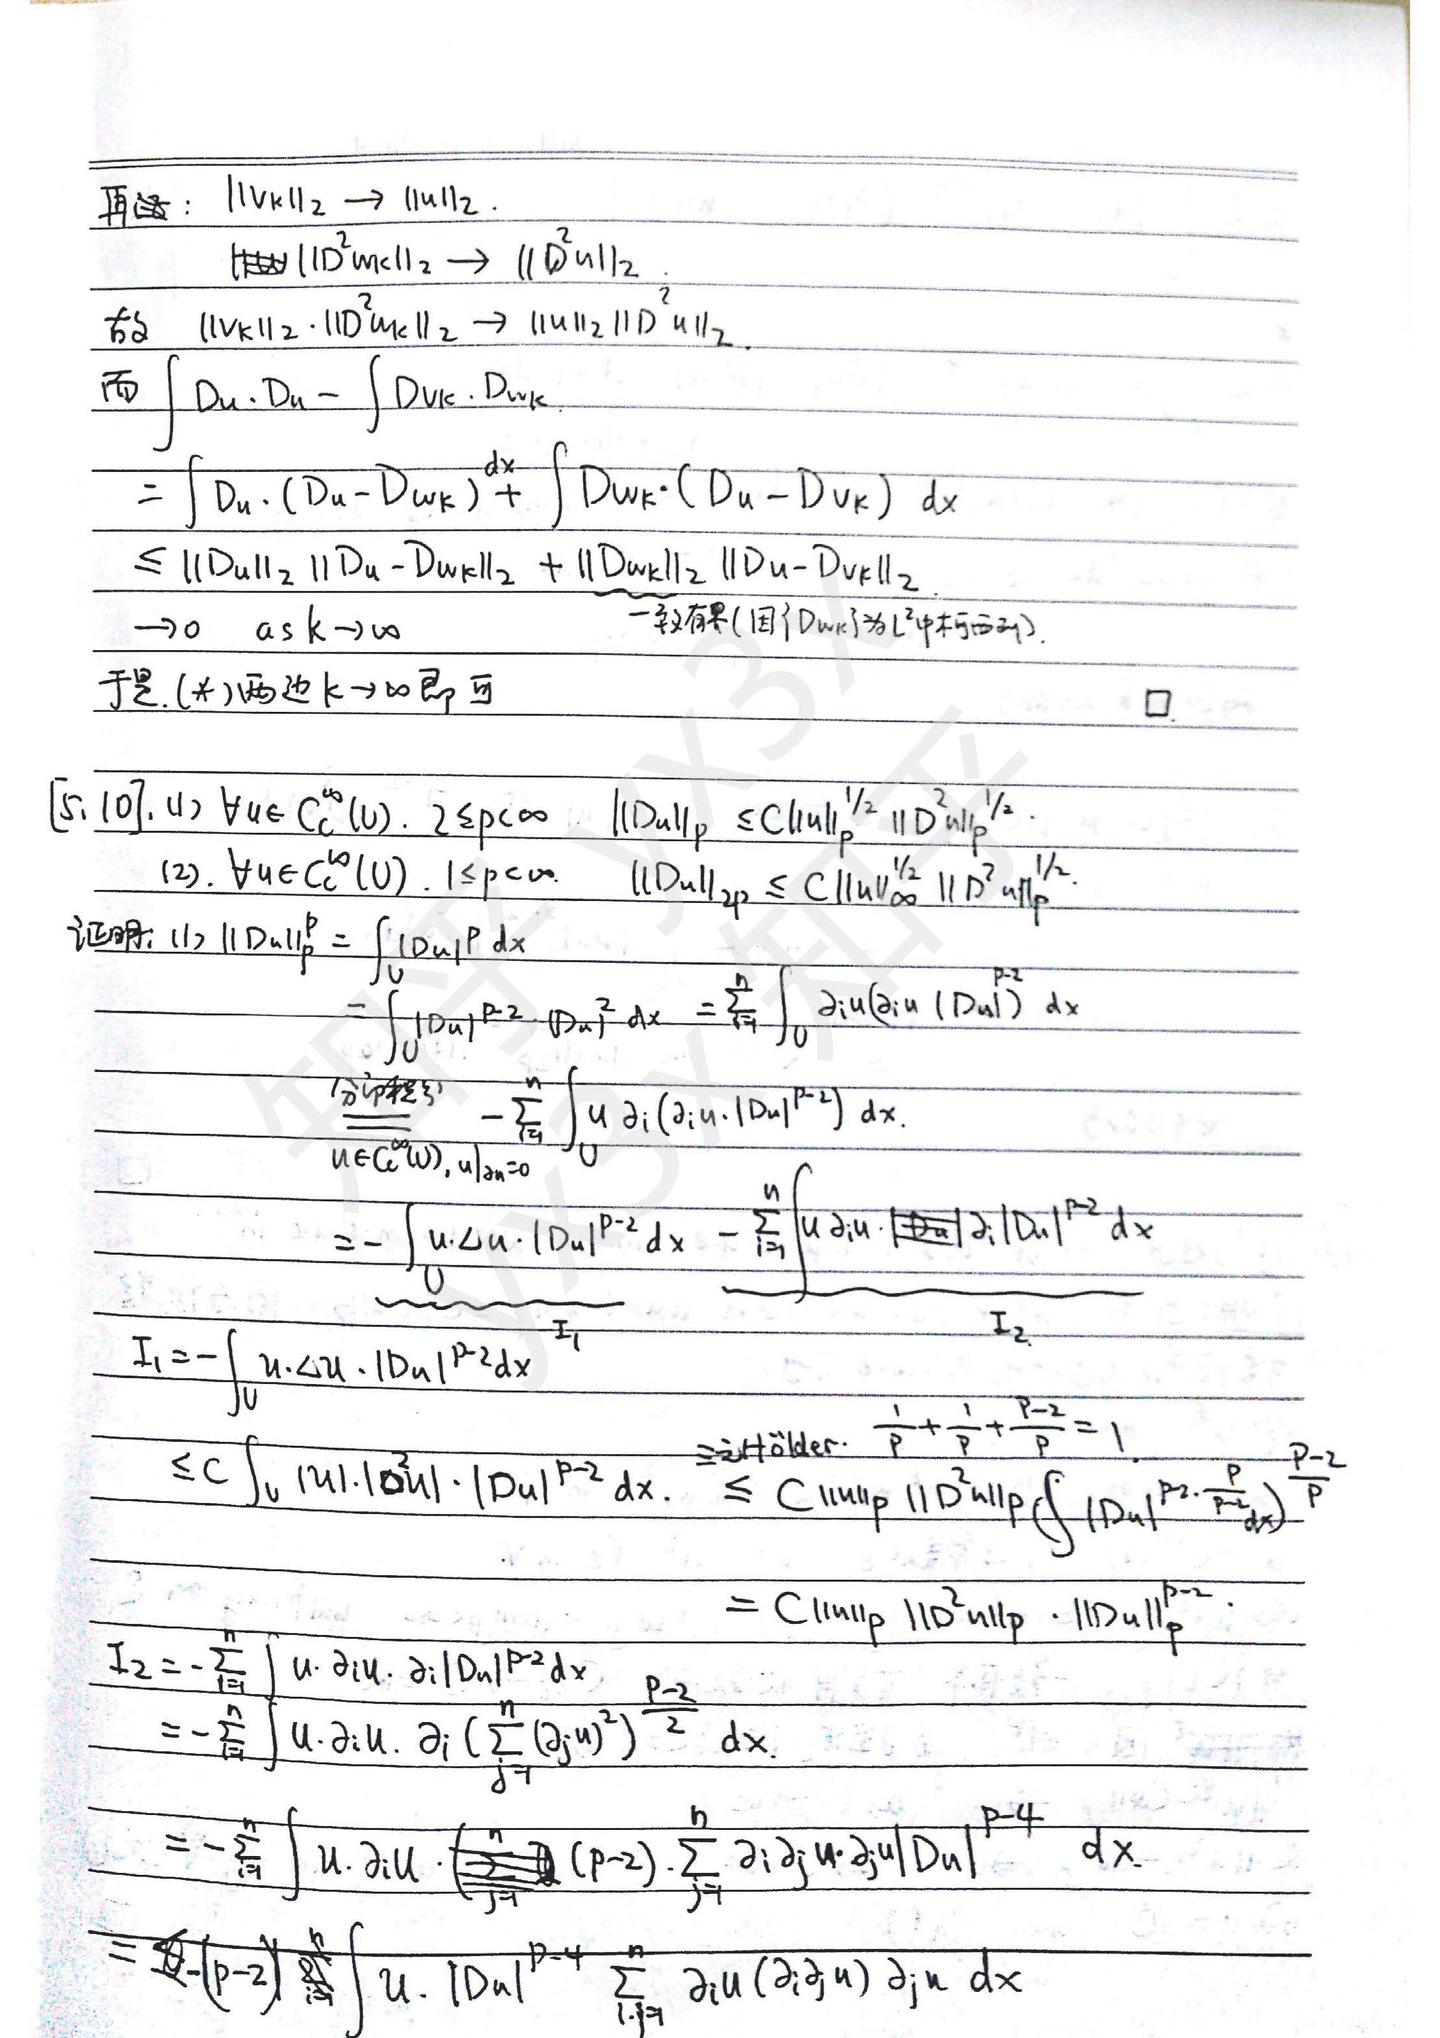 再注: ||v_k||_2 → ||u||_2.
||D^2 w_k||_2 → ||D^2 u||_2.
故 ||v_k||_2 · ||D^2 w_k||_2 → ||u||_2 ||D^2 u||_2.
而 ∫ Du · Du - ∫ Dv_k · Dw_k
= ∫ Du · (Du - Dw_k) dx + ∫ Dw_k · (Du - Dv_k) dx
≤ ||Du||_2 ||Du - Dw_k||_2 + ||Dw_k||_2 ||Du - Dv_k||_2
→ 0 as k → ∞ 一致有界(因{Dw_k}为L^2中柯西列).
于是.(*)两边 k → ∞ 即可 □.
[5.10]. (1) ∀u∈C_c^∞(U). 2≤p<∞ ||Du||_p ≤ C||u||_p^{1/2} ||D^2 u||_p^{1/2}.
(2). ∀u∈C_c^∞(U). 1≤p<∞. ||Du||_{2p} ≤ C||u||_∞^{1/2} ||D^2 u||_p^{1/2}.
证明: (1) ||Du||_p^p = ∫_U |Du|^p dx
= ∫_U |Du|^{p-2} · |Du|^2 dx = Σ_{i=1}^n ∫_U ∂_i u (∂_i u |Du|^{p-2}) dx
分部积分 u∈C_c^∞(U), u|_{∂u}=0 = - Σ_{i=1}^n ∫_U u ∂_i (∂_i u · |Du|^{p-2}) dx.
= - ∫_U u · Δu · |Du|^{p-2} dx - Σ_{i=1}^n ∫ u ∂_i u · ∂_i |Du|^{p-2} dx
I_1 I_2
I_1 = - ∫_U u · Δu · |Du|^{p-2} dx
三次Hölder. 1/p + 1/p + (p-2)/p = 1.
≤ C ∫_U |u| · |D^2 u| · |Du|^{p-2} dx. ≤ C||u||_p ||D^2 u||_p (∫ |Du|^{p-2 · p/(p-2)} dx)^{(p-2)/p}
= C||u||_p ||D^2 u||_p · ||Du||_p^{p-2}.
I_2 = - Σ_{i=1}^n ∫ u · ∂_i u · ∂_i |Du|^{p-2} dx
= - Σ_{i=1}^n ∫ u · ∂_i u · ∂_i (Σ_{j=1}^n (∂_j u)^2)^{(p-2)/2} dx.
= - Σ_{i=1}^n ∫ u · ∂_i u · (p-2) · Σ_{j=1}^n ∂_i ∂_j u · ∂_j u |Du|^{p-4} dx.
= -(p-2) ∫ u · |Du|^{p-4} Σ_{i,j=1}^n ∂_i u (∂_i ∂_j u) ∂_j u dx
知乎 yx3x
yx3x 知乎